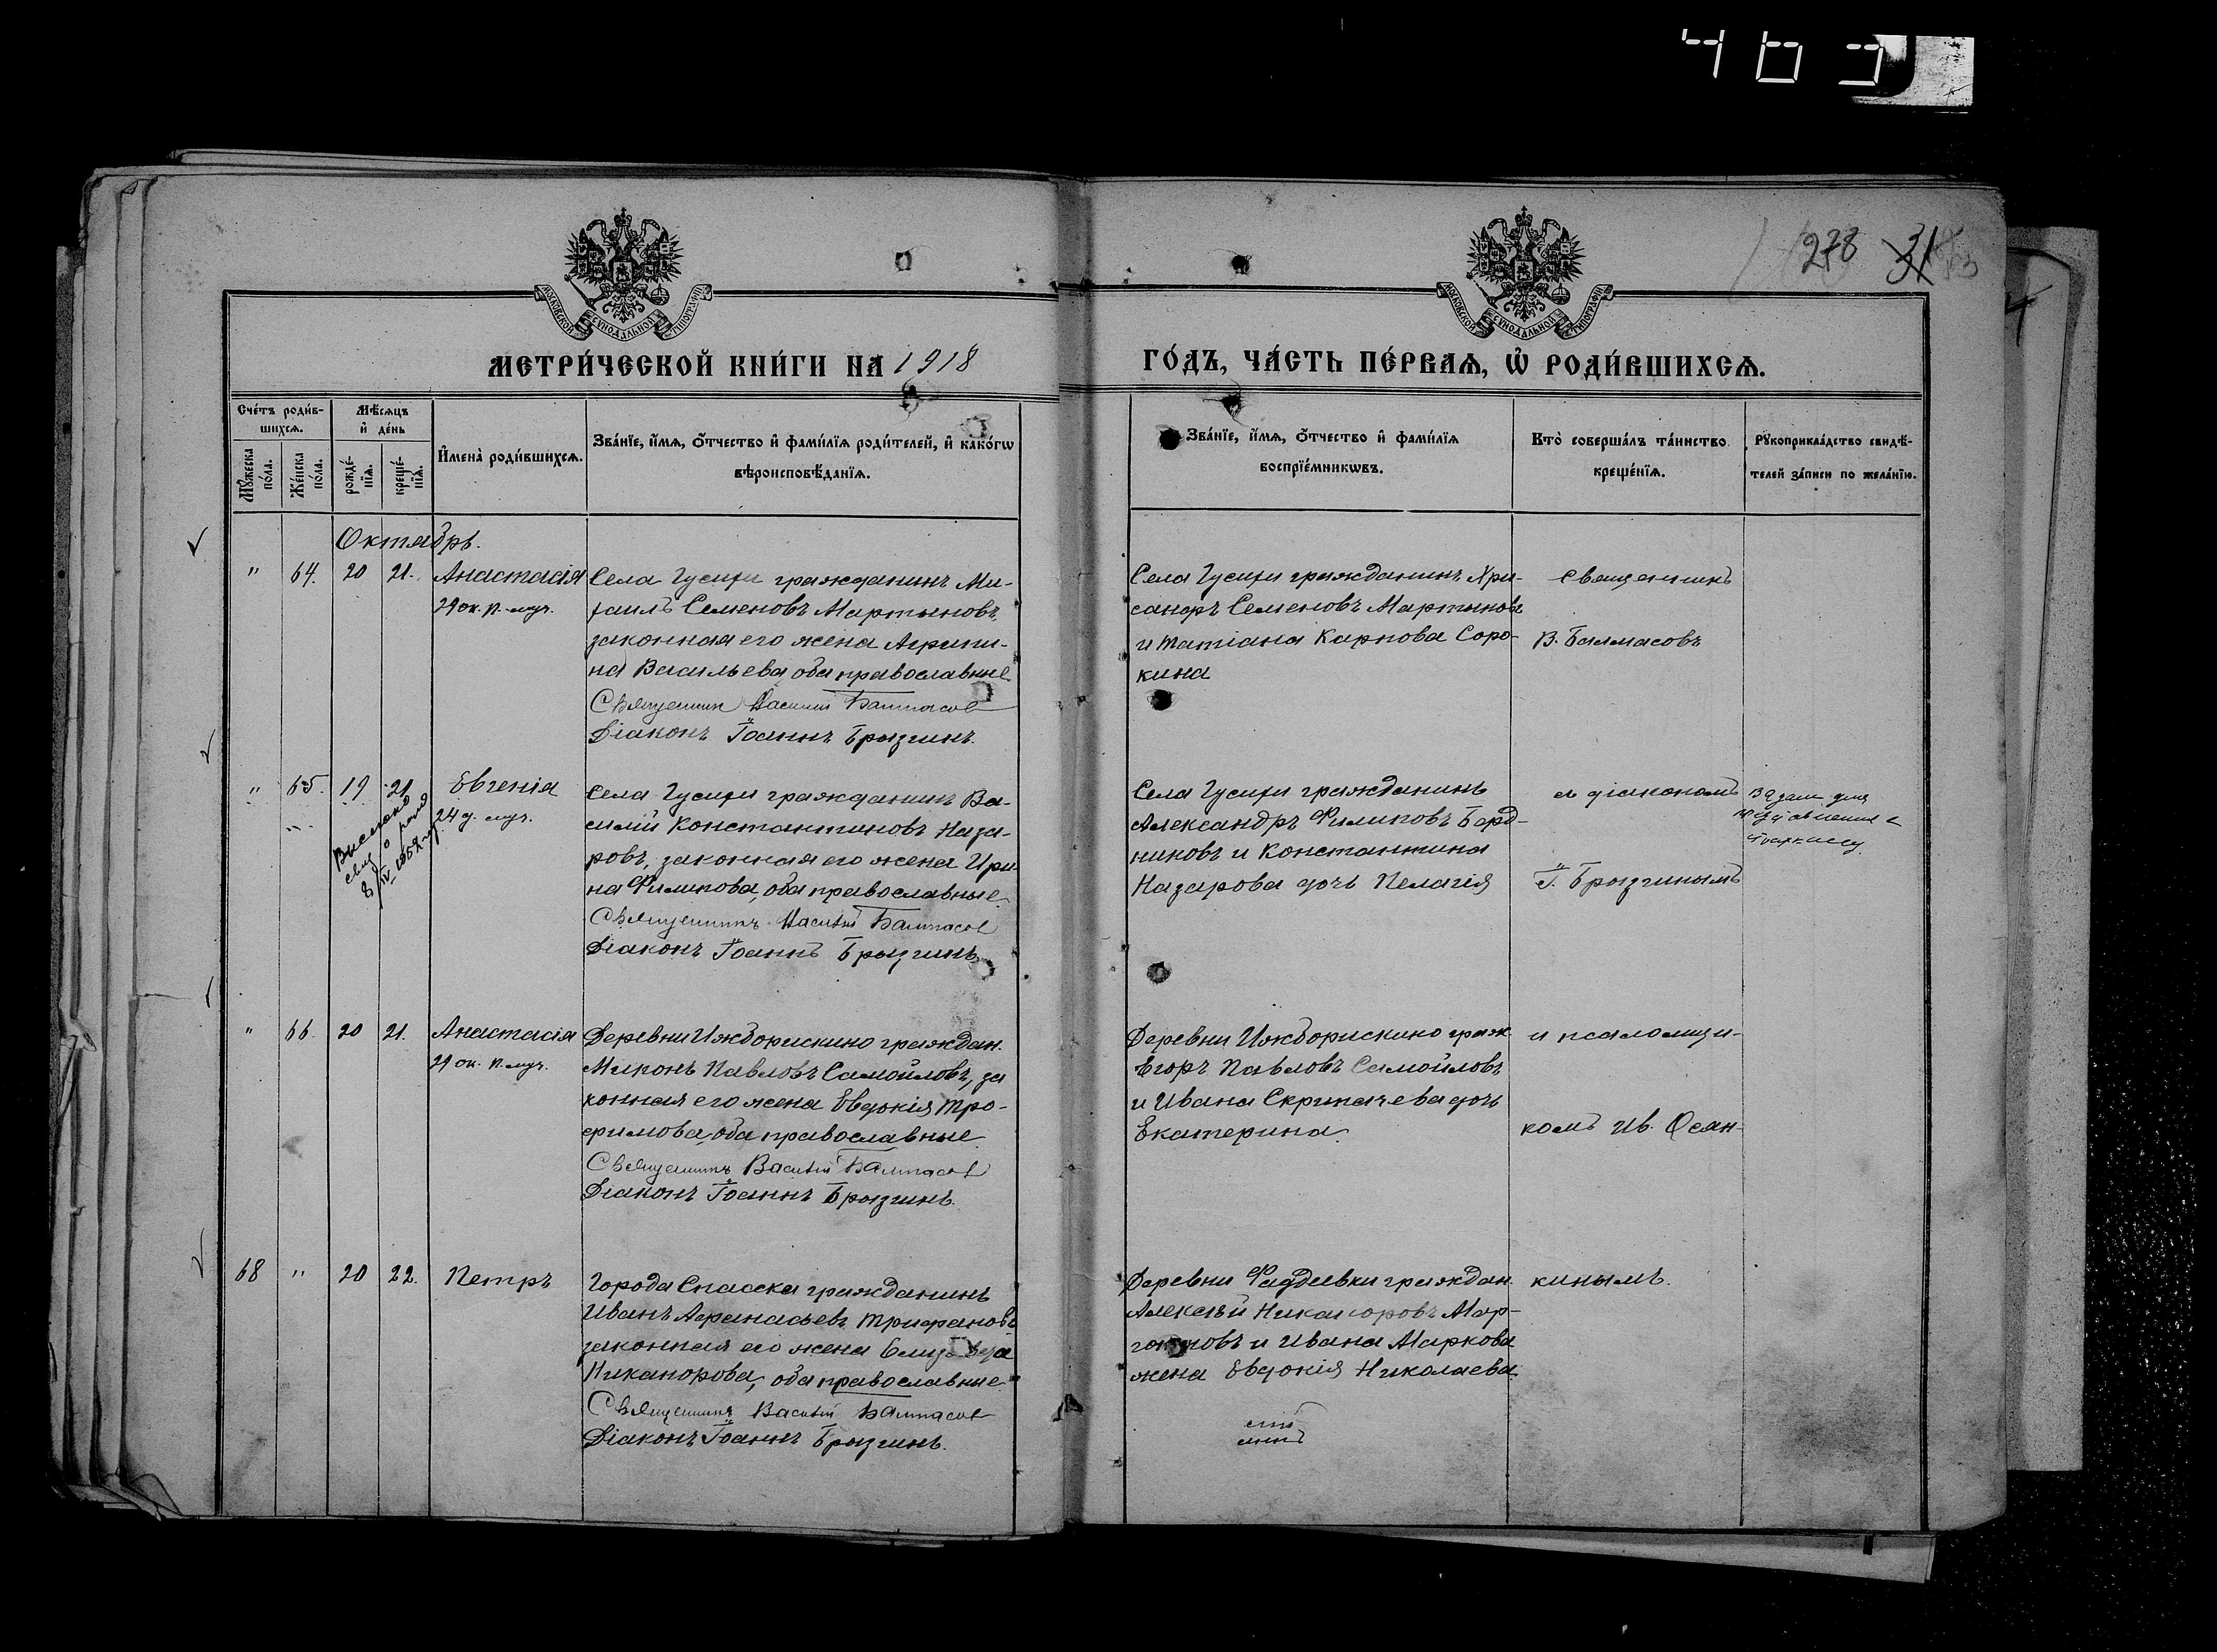 463
278 31
МОСКОВСКОЙ СѴНОДАЛЬНОЙ ТИПОГРАФІИ
МОСКОВСКОЙ СѴНОДАЛЬНОЙ ТИПОГРАФІИ
МЕТРИ́ЧЕСКОЙ КНИ́ГИ НА 1918
ГО́ДЪ, ЧА́СТЬ ПЕ́РВАѦ, Ѡ РОДИ́ВШИХСѦ.
Сче́тъ роди́в-
шихсѧ.
Мѣ́сѧцъ
и де́нь
Мꙋ́жеска
по́ла.
Же́нска
по́ла.
рожде́-
нїѧ.
креще́-
нїѧ.
И҆мена̀ роди́вшихсѧ.
Зва́нїе, и҆́мѧ, ѻ҆́тчество и҆ фами́лїѧ роди́телей, и҆ како́гѡ
вѣроисповѣ́данїѧ.
Зва́нїе, и҆́мѧ, ѻ҆́тчество и҆ фами́лїѧ
воспрїе́мникѡвъ.
Кто̀ соверша́лъ та́инство
креще́нїѧ.
Рꙋкоприкла́дство свидѣ́-
телей за́писи по жела́нїю.
Октябрь.
" 64. 20 21. Анастасія
29 ок. п. муч.
Села Гусихи гражданинъ Ми-
хаилъ Семеновъ Мартыновъ,
законная его жена Агрипи-
на Васильева оба православные
Священникъ Василій Балмасов
Діаконъ Іоаннъ Брызгинъ.
Села Гусихи гражданинъ Хри-
санфъ Семеновъ Мартыновъ
и Татіана Карпова Соро-
кина
священникъ
В. Балмасовъ
" 65. 19 21 Евгенія
24 д. муч.
Села Гусихи гражданинъ Ва-
силій Константиновъ Наза-
ровъ, законная его жена Ири-
на Филипова, оба православные.
Священникъ Василій Балмасов
Діаконъ Іоаннъ Брызгинъ
Села Гусихи гражданинъ
Александръ Филиповъ Бард-
никовъ и Константина
Назарова дочь Пелагія
съ діакономъ
І. Брызгинымъ
" 66. 20 21. Анастасія
29 ок. п. муч.
Деревни Ижборискино граждан.
Миронъ Павловъ Самойловъ, за
конная его жена Евдокія Тро-
фимова, оба православные
Священникъ Василій Балмасов
Діаконъ Іоаннъ Брызгинъ.
Деревни Ижборискино граж.
Егоръ Павловъ Самойловъ
и Ивана Скрипачева дочь
Екатерина.
и псаломщи-
комъ Ив. Осян-
68 " 20 22. Петръ
Города Спасска гражданинъ
Иванъ Афанасьевъ Трифановъ
законная его жена Елиза
Никанорова, оба православные
Священникъ Василій Балмасов
Діаконъ Іоаннъ Брызгинъ.
Деревни Фаддеевки граждан.
Алексѣй Никаноровъ Мар-
и Ивана Маркова
жена Евдокія Николаева
кинымъ.